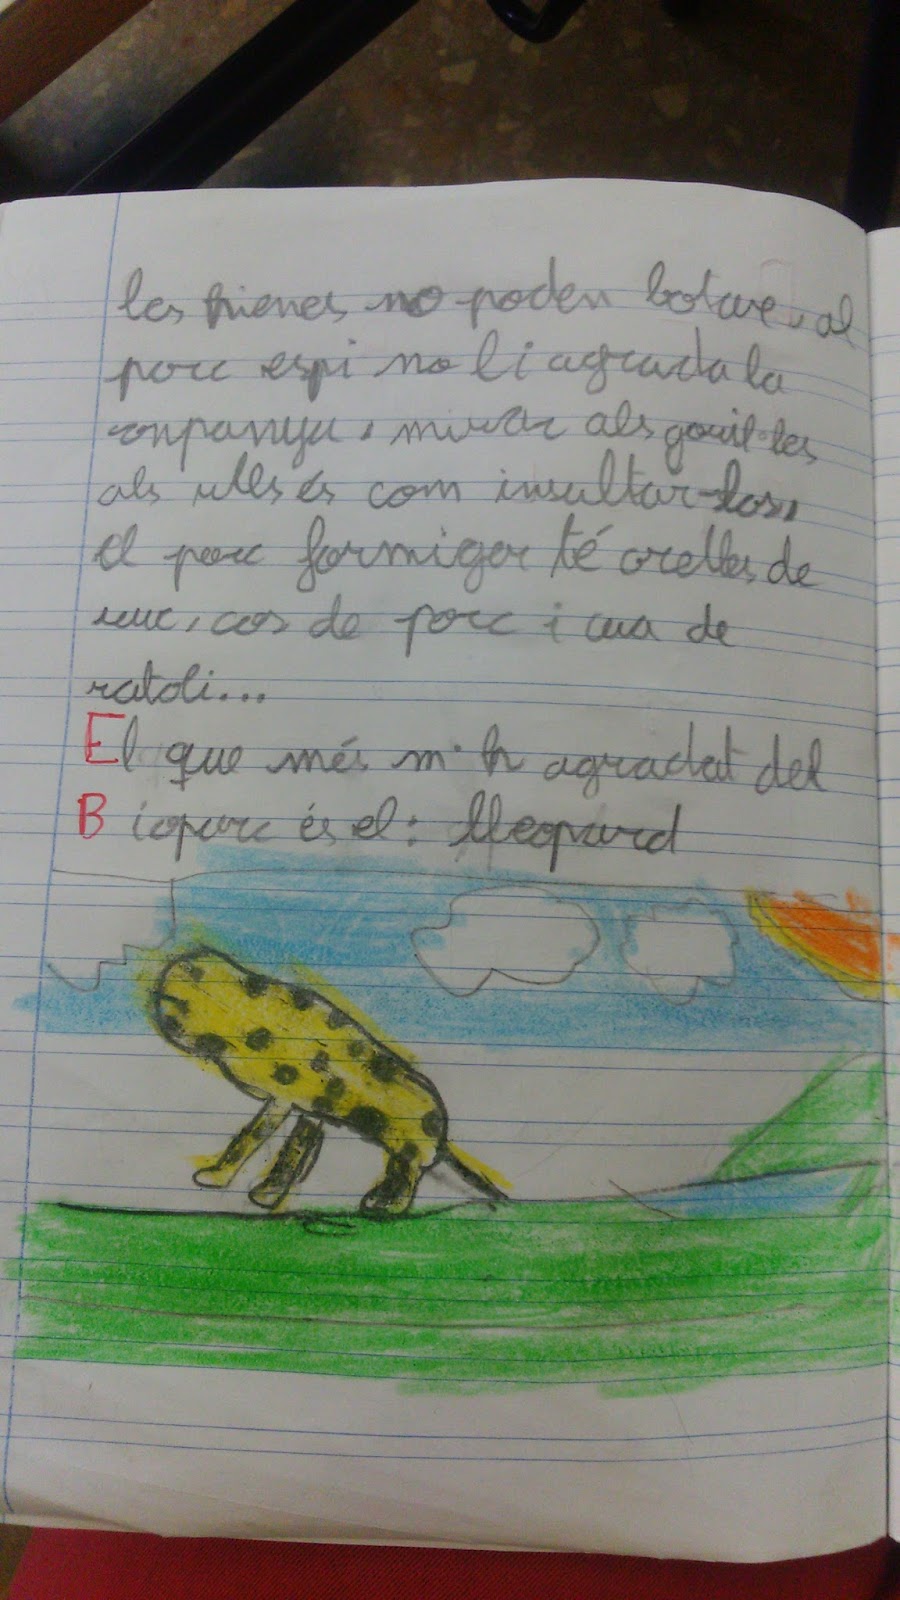 les hienes no poden botar, al
porc espi no li agrada la
conpanyu, mirar als goril·les
als ulls és com insultar-los,
el porc formiger té orelles de
ruc, cos de porc i cua de
ratoli...
El que més m'h agradat del
Bioparc és el: lleopard